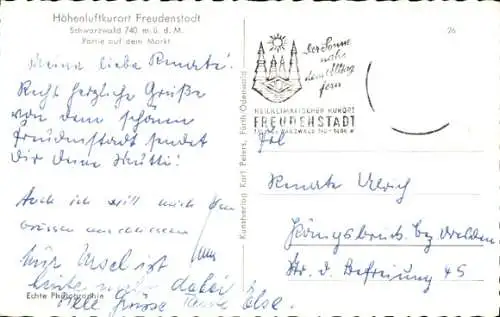 Höhenluftkurort Freudenstadt
Schwarzwald 740 m. ü. d. M.
Partie auf dem Markt
Meine liebe Renate!
Recht herzliche Grüße
von dem schönen
Freudenstadt sendet
Dir Deine Mutti!
Auch ich will mich
Nur Insel ist
dabei
Viele Grüsse Tante Else.
Echte Photographie
Kunstverlag Karl Peters, Fürth Odenwald
26
der Sonne
nahe
dem Alltag
fern
HEILKLIMATISCHER KURORT
FREUDENSTADT
SCHWARZWALD 740-1000 m
Frl
Renate Ulrich
Königsbrück bez Dresden
Str. d. Befreiung 45